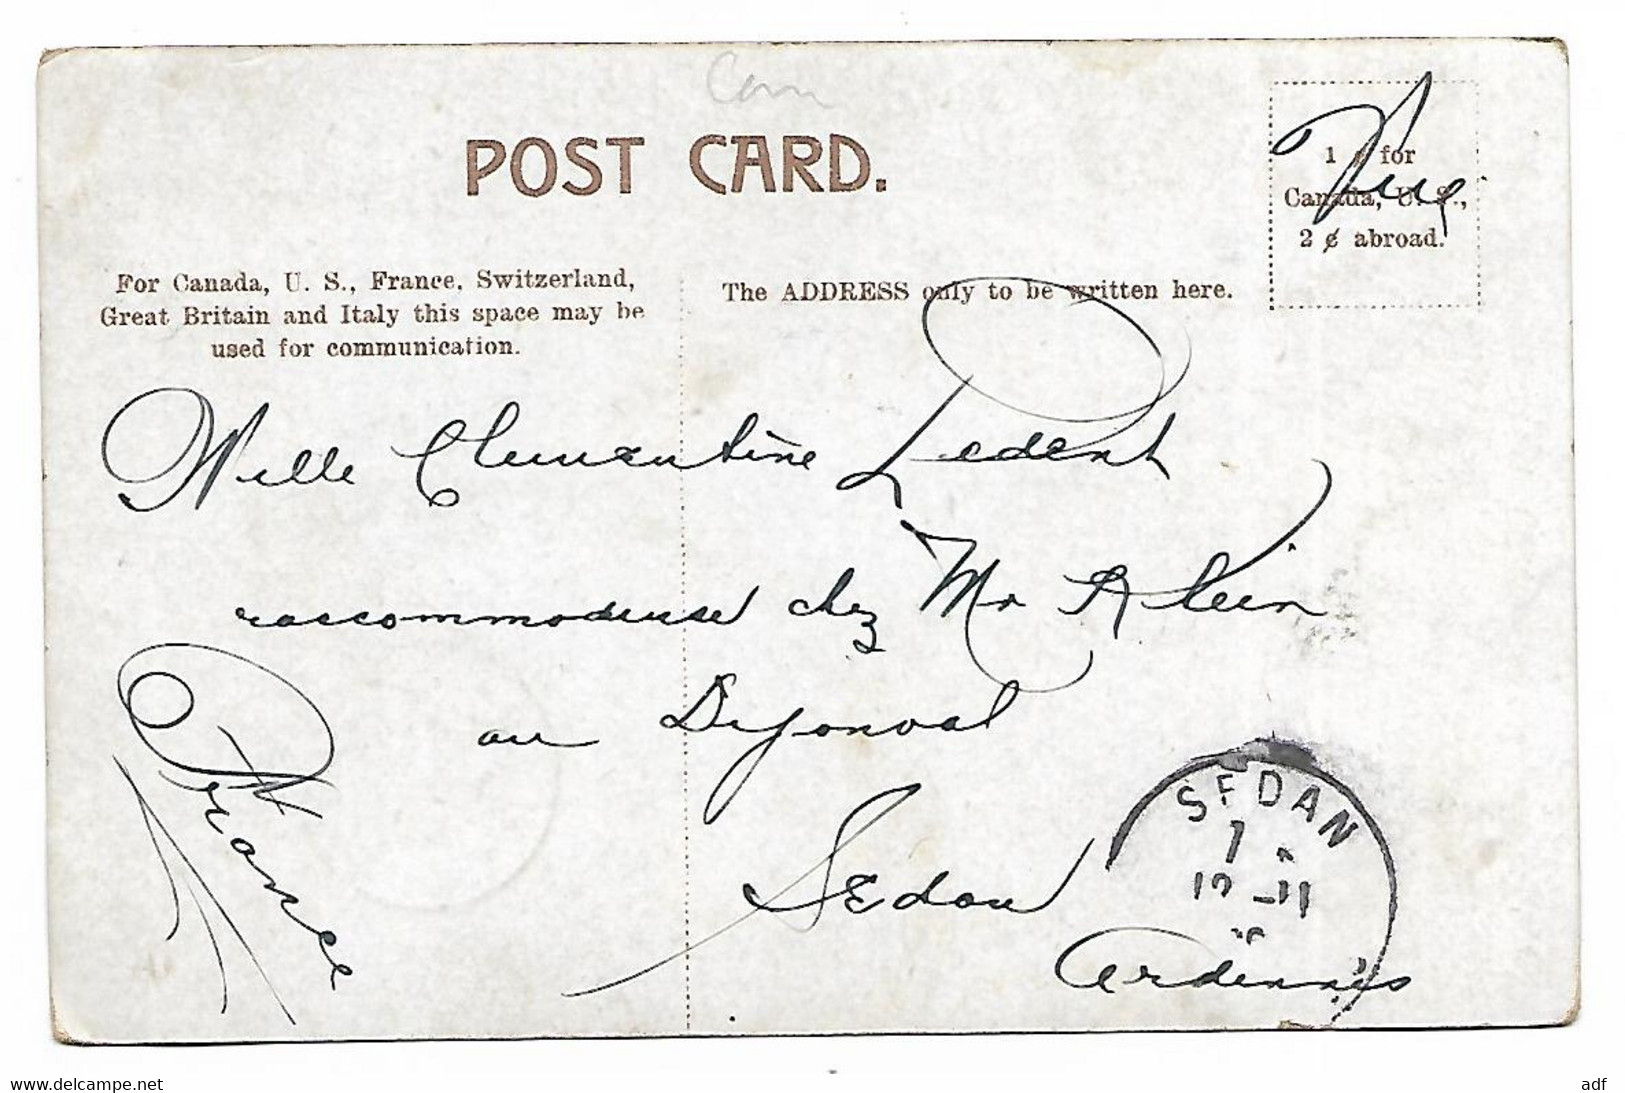 Can
POST CARD.
1 ¢ for
Canada, U. S.,
2 ¢ abroad.
For Canada, U. S., France, Switzerland,
Great Britain and Italy this space may be
used for communication.
The ADDRESS only to be written here.
Melle Clementine Ledent
raccommodeuse chez Mr Klein
au Dijonval
Sedan
Ardennes
France
SEDAN
7
12 -11
www.delcampe.net
adf